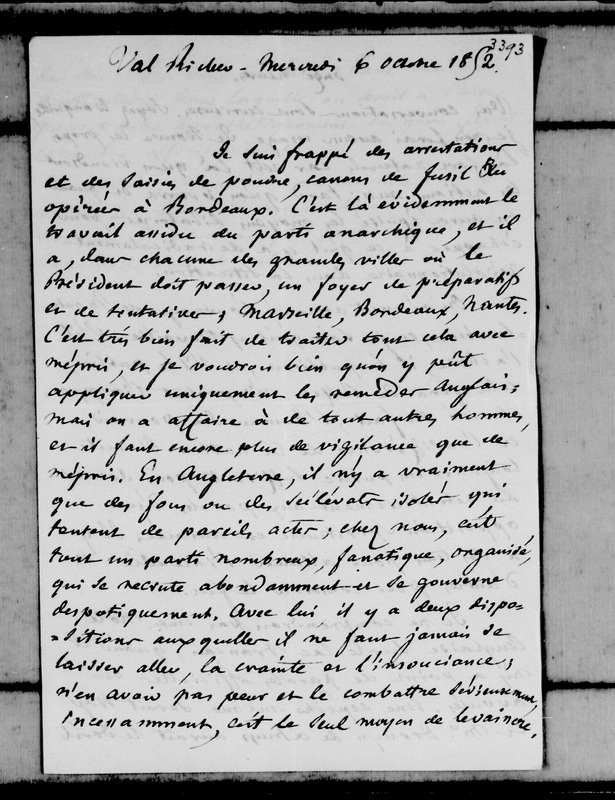 3393
Val Richer - Mercredi 6 Octobre 1852.
Je suis frappé des arrestations
et des saisies de poudre, canons de fusil &c
opérées à Bordeaux. C'est là évidemment le
travail assidu du parti anarchique, et il
a, dans chacune des grandes villes où le
Président doit passer, un foyer de préparatifs
et de tentatives; Marseille, Bordeaux, Nantes.
C'est très bien fait de traiter tout cela avec
mépris, et je voudrois bien qu'on y pût
appliquer uniquement les remèdes Anglais;
mais on a affaire à de tout autres hommes,
et il faut encore plus de vigilance que de
mépris. En Angleterre, il n'y a vraiment
que des fous ou des scélérats isolés qui
tentent de pareils actes; chez nous, c'est
tout un parti nombreux, fanatique, organisé,
qui se recrute abondamment et se gouverne
despotiquement. Avec lui il y a deux dispo-
=sitions auxquelles il ne faut jamais se
laisser aller, la crainte et l'insouciance;
n'en avoir pas peur et le combattre sérieusement,
incessamment, c'est le seul moyen de le vaincre.